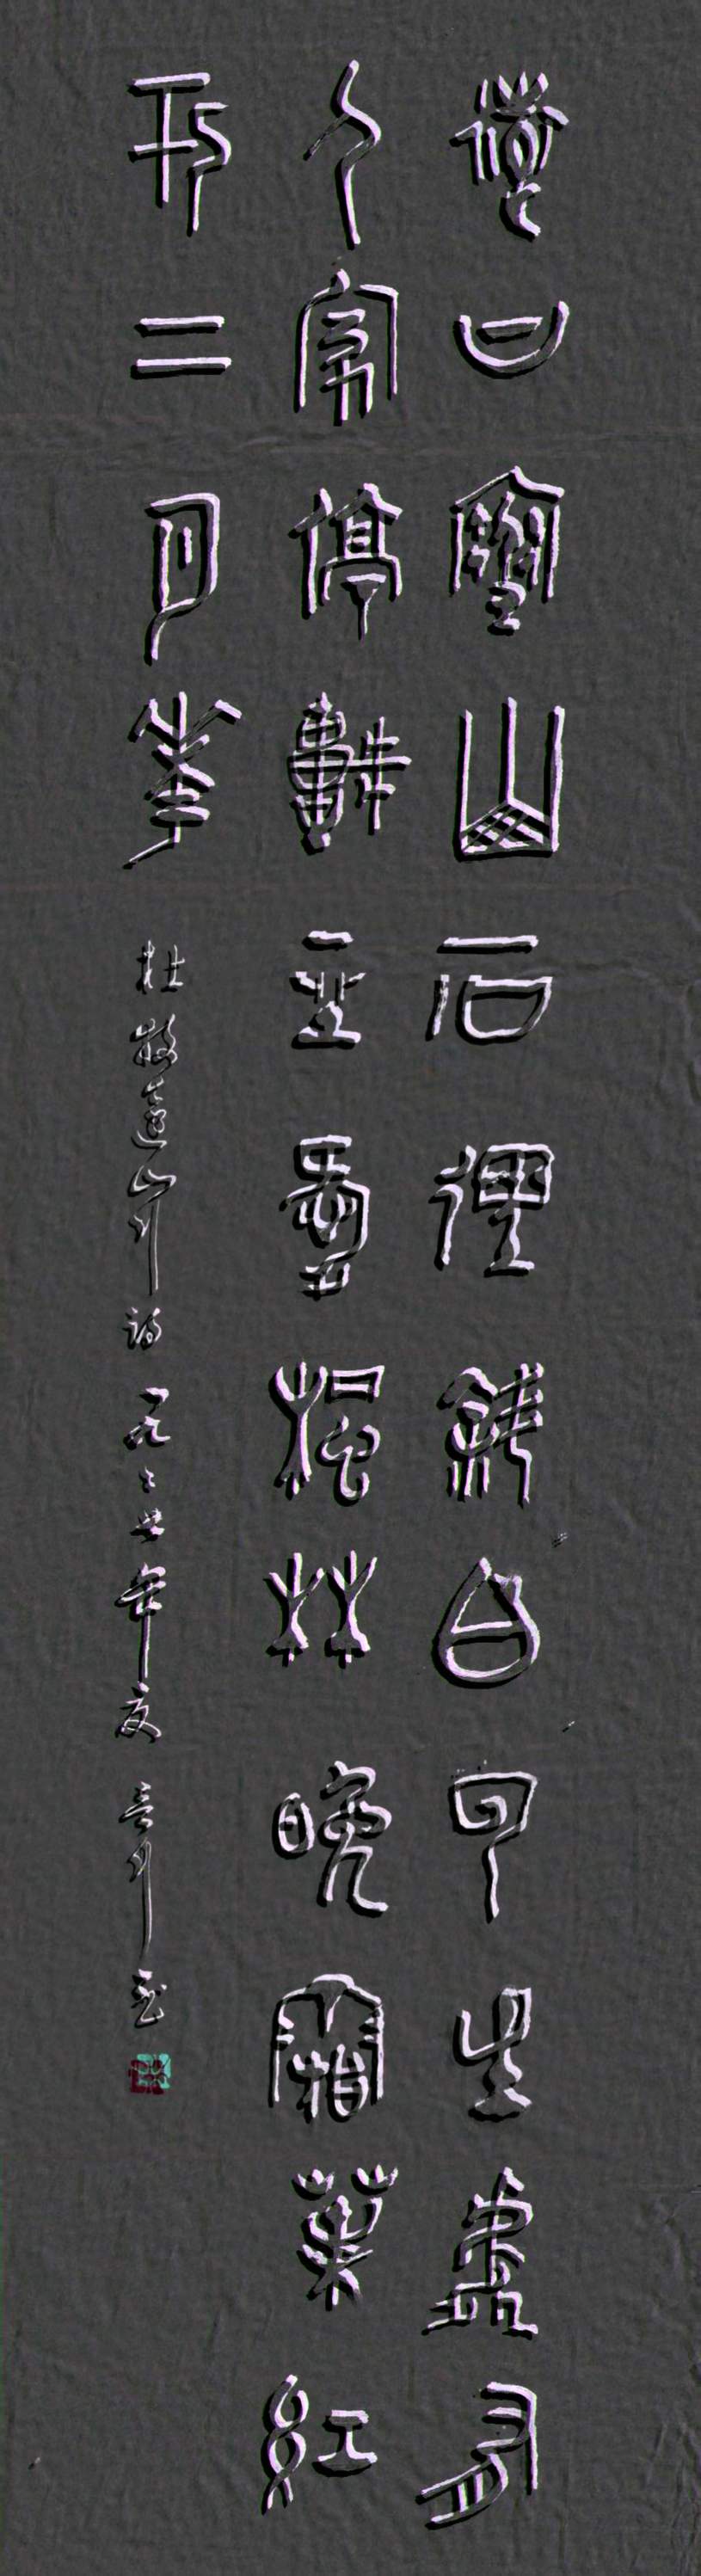 遠上寒山石徑斜白雲生處有
人家停車坐愛楓林晚霜葉紅
於二月花
杜牧遠山行詩 一九 年夏